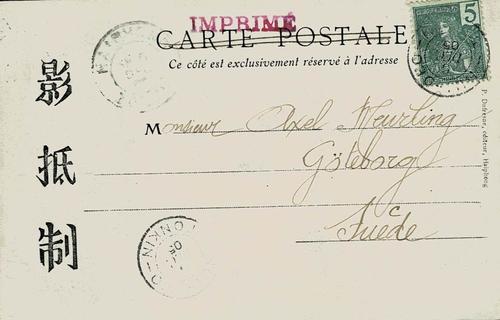 IMPRIMÉ
CARTE POSTALE
Ce côté est exclusivement réservé à l'adresse
5
影抵制
Monsieur Axel Meurling
Göteborg
Suède
P. Dufresne, éditeur, Haiphong
TONKIN